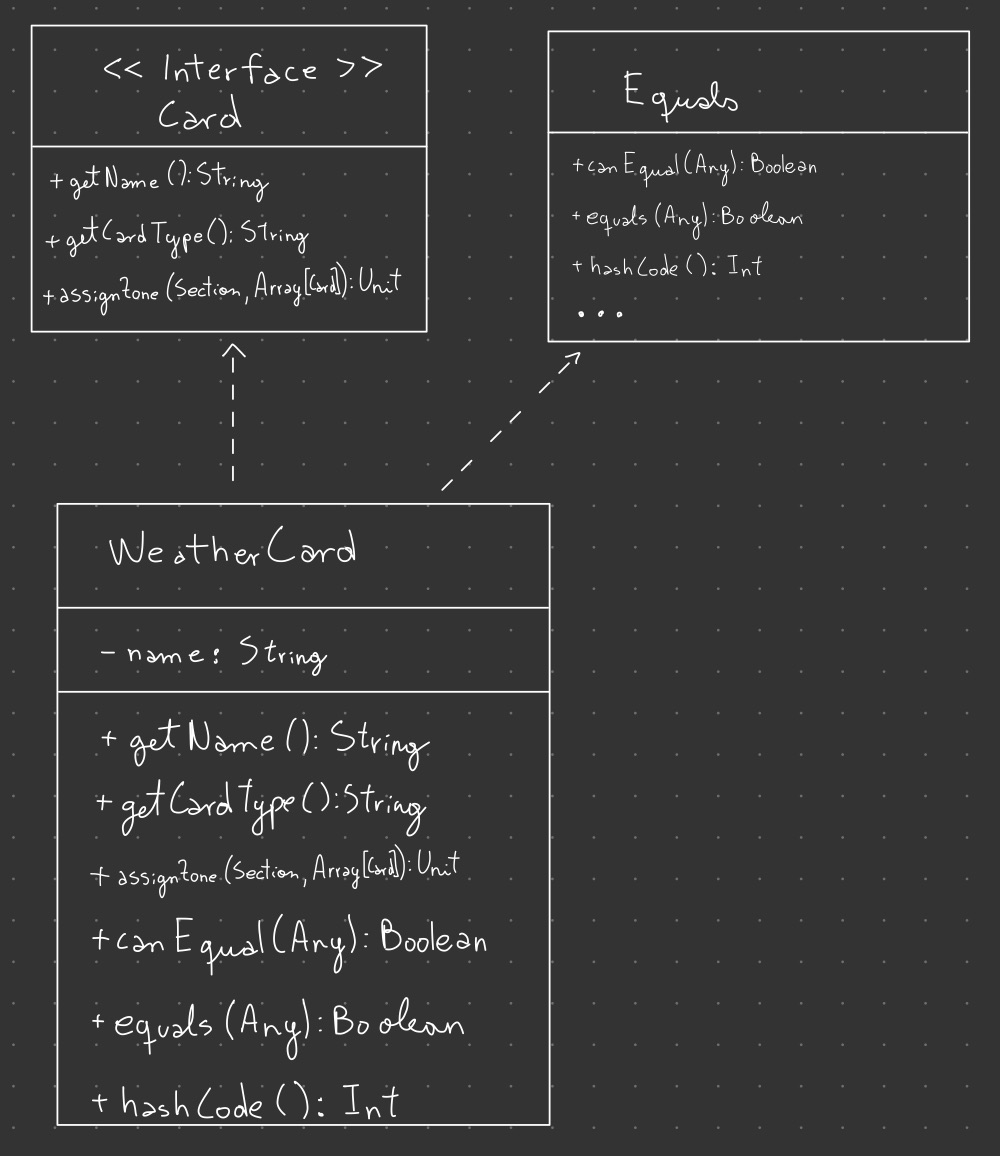 << Interface >>
Card
+ getName(): String
+ getCardType(): String
+ assignZone(Section, Array[Card]): Unit
Equals
+ canEqual(Any): Boolean
+ equals(Any): Boolean
+ hashCode(): Int
...
WeatherCard
- name: String
+ getName(): String
+ getCardType(): String
+ assignZone(Section, Array[Card]): Unit
+ canEqual(Any): Boolean
+ equals(Any): Boolean
+ hashCode(): Int